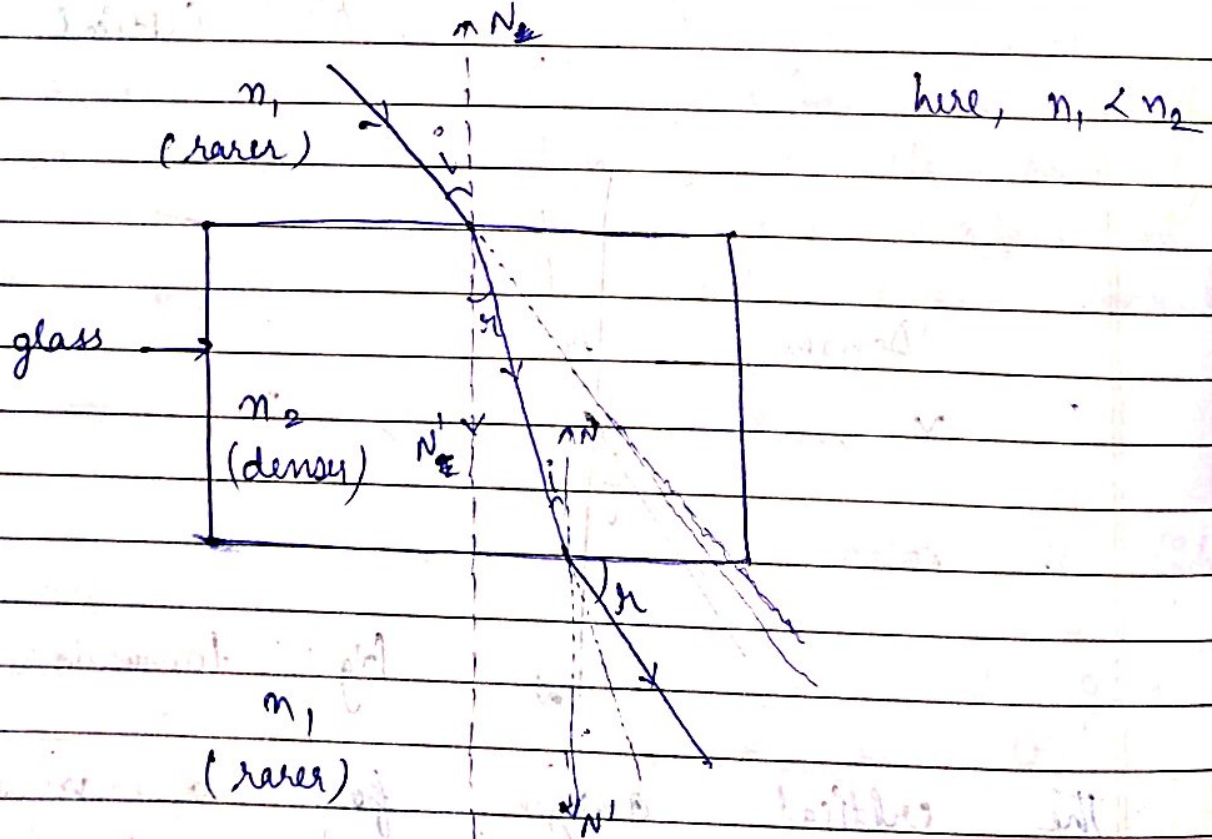 N
n₁
(rarer)
here, n₁ < n₂
i
r
glass
n₂
(denser)
N'
N
i
r
n₁
(rarer)
N'